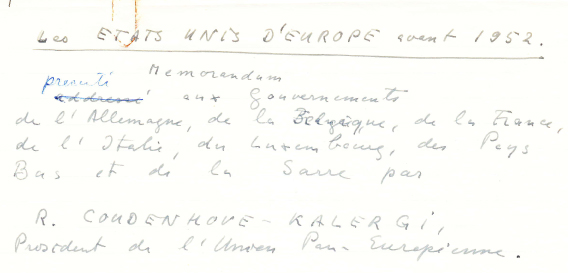 Les ETATS UNIS D'EUROPE avant 1952.
Memorandum
présenté
adressé aux Gouvernements
de l'Allemagne, de la Belgique, de la France,
de l'Italie, du Luxembourg, des Pays
Bas et de la Sarre par
R. COUDENHOVE-KALERGI,
Président de l'Union Pan-Européenne.